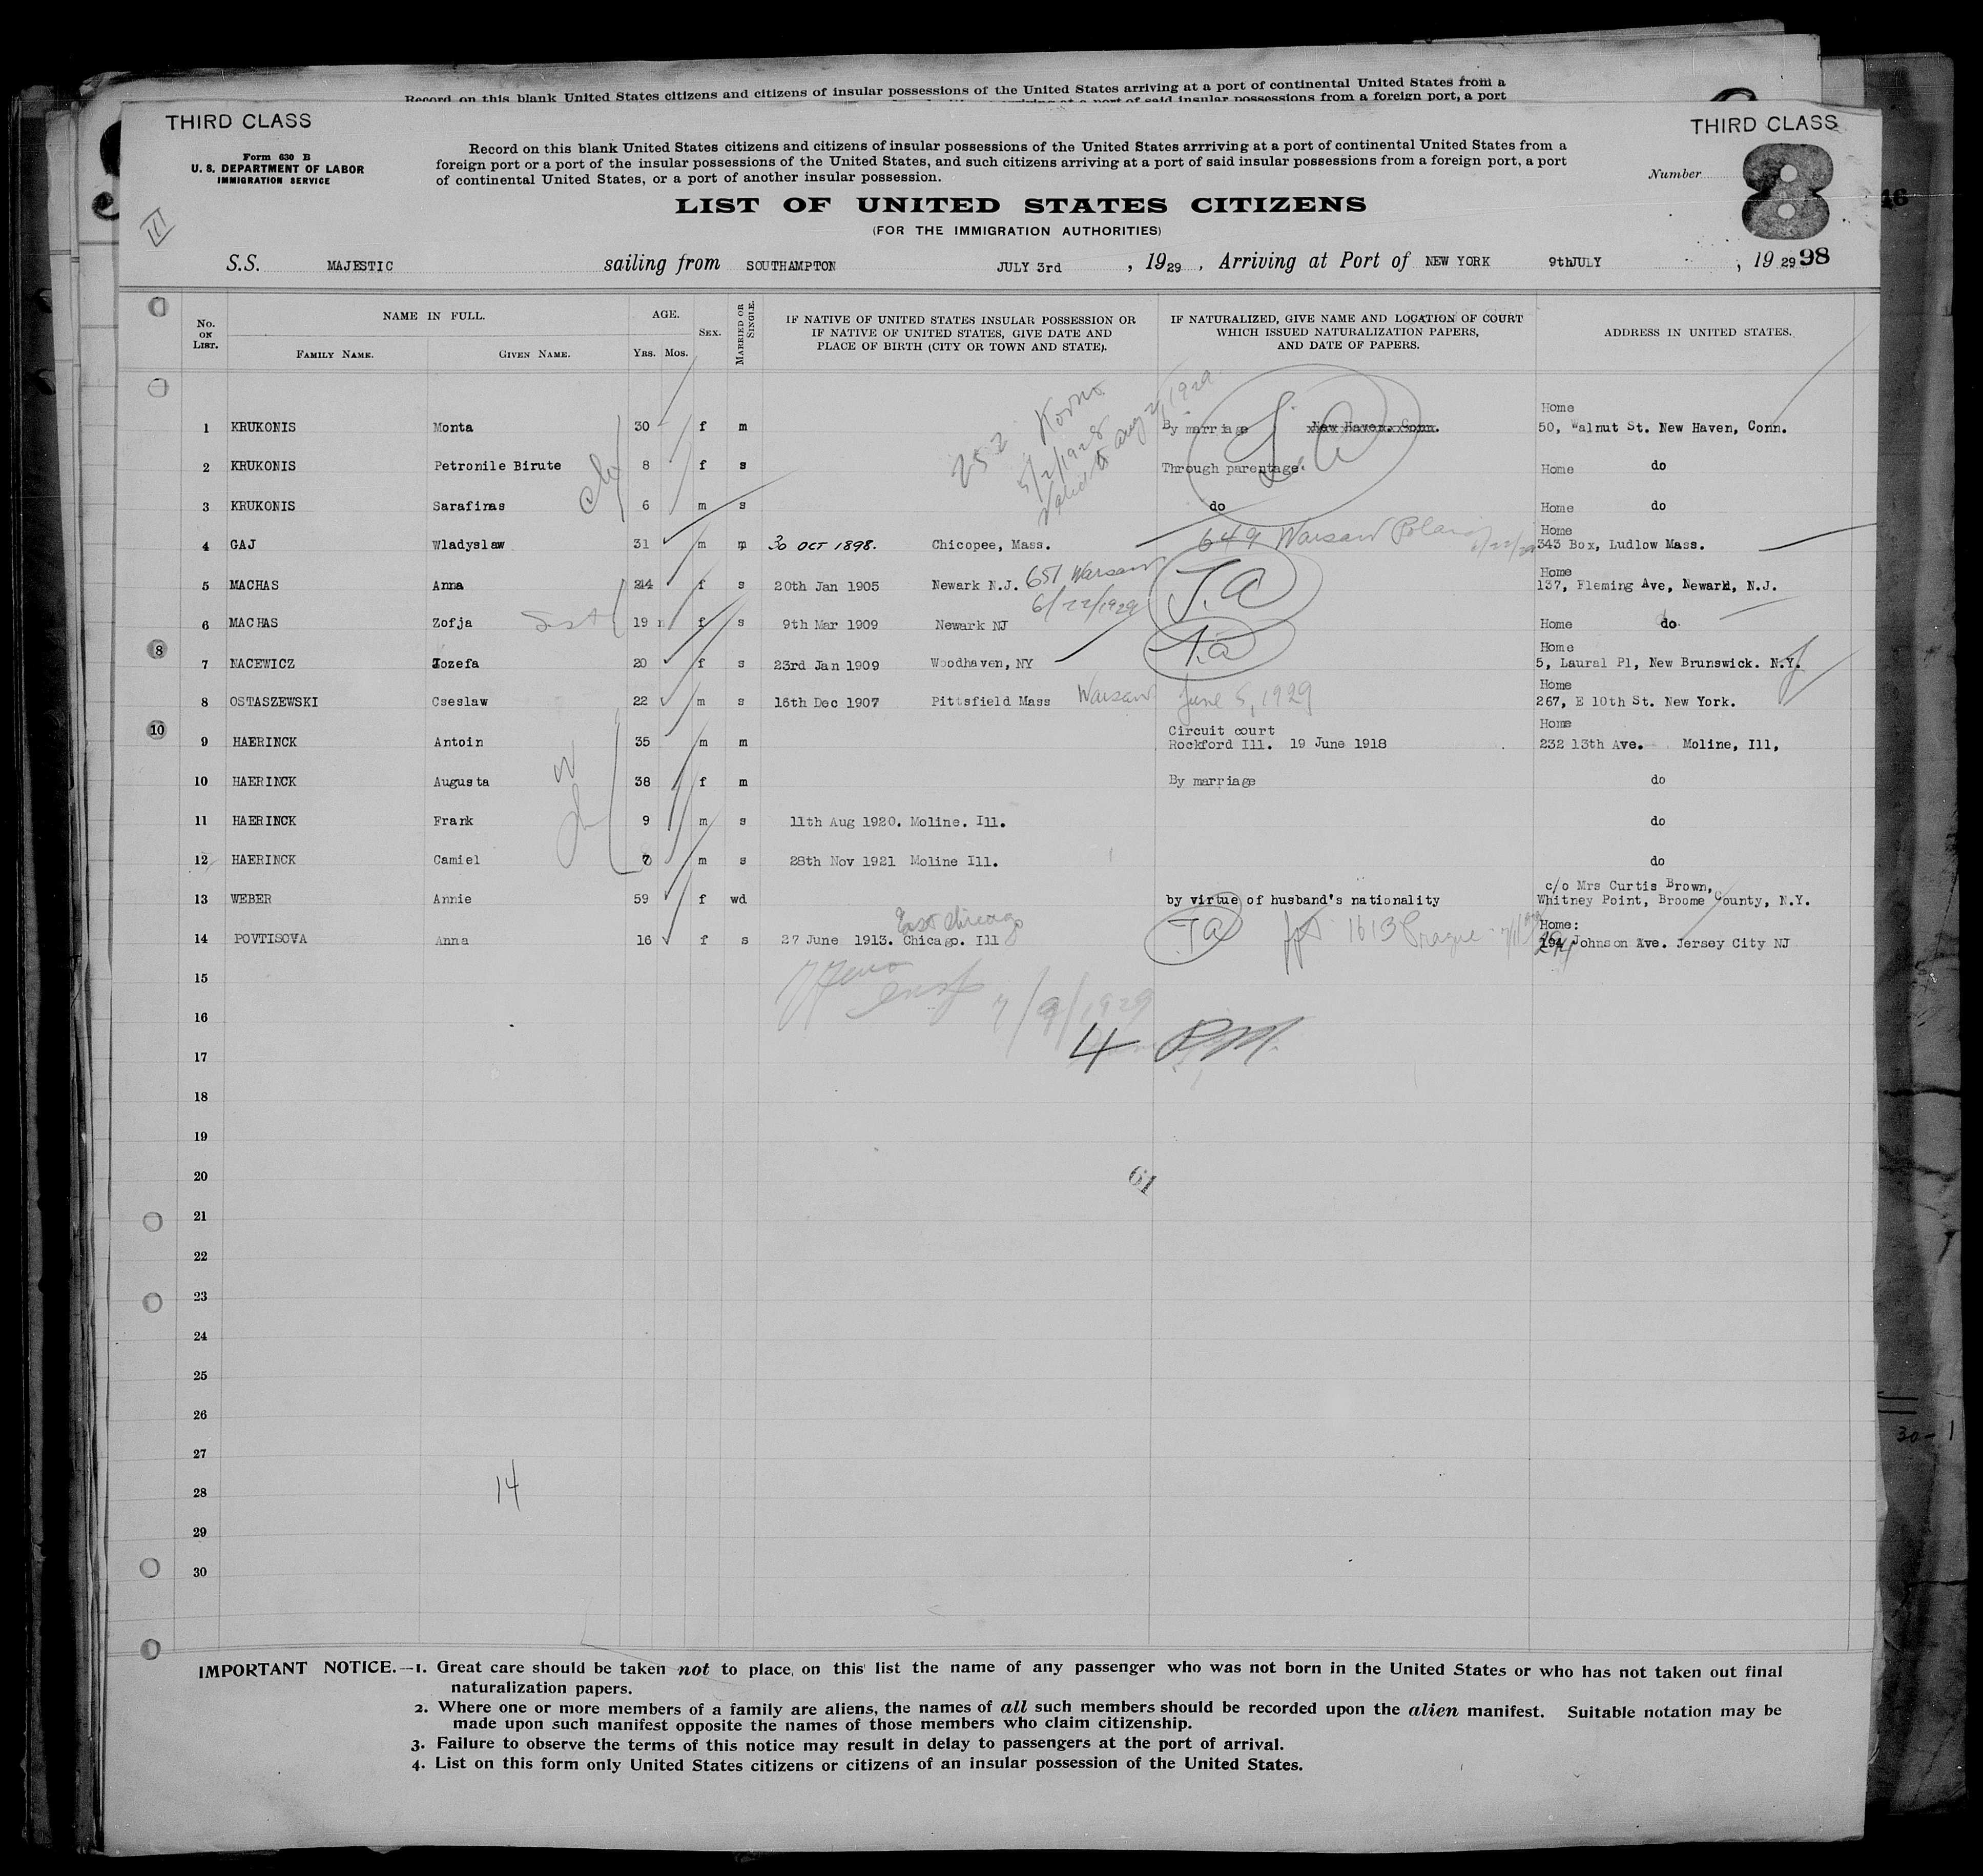 Record on this blank United States citizens and citizens of insular possessions of the United States arriving at a port of continental United States from a
THIRD CLASS
THIRD CLASS
Form 630 B
U. S. DEPARTMENT OF LABOR
IMMIGRATION SERVICE
Record on this blank United States citizens and citizens of insular possessions of the United States arrriving at a port of continental United States from a
foreign port or a port of the insular possessions of the United States, and such citizens arriving at a port of said insular possessions from a foreign port, a port
of continental United States, or a port of another insular possession.
Number 8
LIST OF UNITED STATES CITIZENS
(FOR THE IMMIGRATION AUTHORITIES)
S.S. MAJESTIC sailing from SOUTHAMPTON JULY 3rd , 1929 , Arriving at Port of NEW YORK 9thJULY , 1929 98
No. ON LIST. NAME IN FULL. AGE. SEX. MARRIED OR SINGLE.
FAMILY NAME. GIVEN NAME. Yrs. Mos.
IF NATIVE OF UNITED STATES INSULAR POSSESSION OR
IF NATIVE OF UNITED STATES, GIVE DATE AND
PLACE OF BIRTH (CITY OR TOWN AND STATE).
IF NATURALIZED, GIVE NAME AND LOCATION OF COURT
WHICH ISSUED NATURALIZATION PAPERS,
AND DATE OF PAPERS.
ADDRESS IN UNITED STATES.
252 Kovno
5/2/1928
Valid to Aug 2, 1929
Home
1 KRUKONIS Monta 30 f m By marriage New Haven. Conn. 50, Walnut St. New Haven, Conn.
2 KRUKONIS Petronile Birute 8 f s Through parentage. Home do
3 KRUKONIS Sarafinas 6 m s do Home do
Home
4 GAJ Wladyslaw 31 m m 30 OCT 1898. Chicopee, Mass. 649 Warsaw Poland 343 Box, Ludlow Mass.
Home
5 MACHAS Anna 24 f s 20th Jan 1905 Newark N.J. 651 Warsaw 137, Fleming Ave, Newark, N.J.
6/22/1929
6 MACHAS Zofja 19 f s 9th Mar 1909 Newark NJ Home do
Home
8
7 NACEWICZ Jozefa 20 f s 23rd Jan 1909 Woodhaven, NY 5, Laural Pl, New Brunswick. N.Y.
Home
8 OSTASZEWSKI Cseslaw 22 m s 16th Dec 1907 Pittsfield Mass Warsaw June 5, 1929 267, E 10th St. New York.
10
Circuit court Home
9 HAERINCK Antoin 35 m m Rockford Ill. 19 June 1918 232 13th Ave. Moline, Ill,
10 HAERINCK Augusta 38 f m By marriage do
11 HAERINCK Frank 9 m s 11th Aug 1920. Moline. Ill. do
12 HAERINCK Camiel 7 m s 28th Nov 1921 Moline Ill. do
c/o Mrs Curtis Brown,
13 WEBER Annie 59 f wd by virtue of husband's nationality Whitney Point, Broome County, N.Y.
East Chicago
Home:
14 POVTISOVA Anna 16 f s 27 June 1913. Chicago. Ill 1613 Prague 194 Johnson Ave. Jersey City NJ
15
7/9/1929
16
17
18
19
20
61
21
22
23
24
25
26
27
28
14
29
30
30-1
IMPORTANT NOTICE.—1. Great care should be taken not to place on this list the name of any passenger who was not born in the United States or who has not taken out final
naturalization papers.
2. Where one or more members of a family are aliens, the names of all such members should be recorded upon the alien manifest. Suitable notation may be
made upon such manifest opposite the names of those members who claim citizenship.
3. Failure to observe the terms of this notice may result in delay to passengers at the port of arrival.
4. List on this form only United States citizens or citizens of an insular possession of the United States.